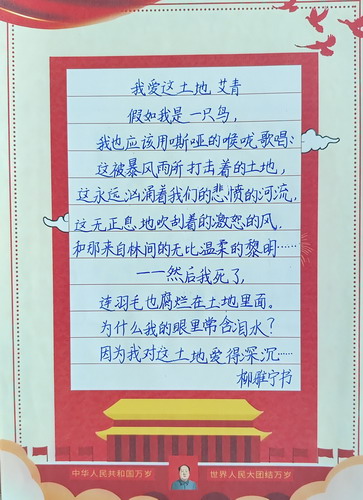 我爱这土地 艾青
假如我是一只鸟,
我也应该用嘶哑的喉咙歌唱:
这被暴风雨所打击着的土地,
这永远汹涌着我们的悲愤的河流,
这无止息地吹刮着的激怒的风,
和那来自林间的无比温柔的黎明……
——然后我死了,
连羽毛也腐烂在土地里面。
为什么我的眼里常含泪水?
因为我对这土地爱得深沉……
柳雅宁书
中华人民共和国万岁 世界人民大团结万岁